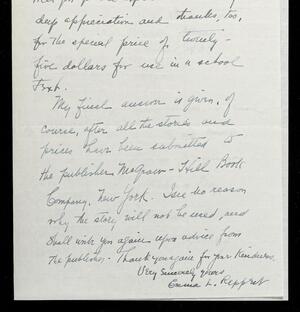 deep appreciation and thanks, too,
for the special price of twenty-
five dollars for use in a school
Text.
My final answer is given, of
course, after all the stories and
prices have been submitted to
the publisher McGraw-Hill Book
Company, New York. I see no reason
why the story will not be used, and
shall write you again upon advice from
the publisher. Thank you again for your kindness.
Very Sincerely yours
Emma L. Reppert